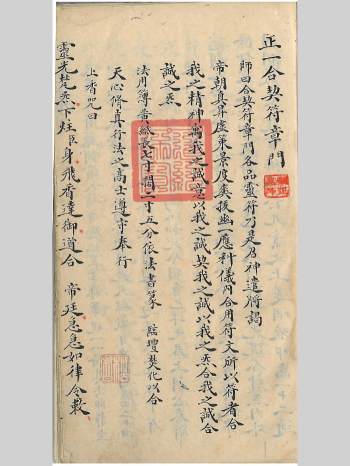 正一合契符章門
師曰合契符章門各品靈符乃是召神遣將謁
帝朝真昇度萊景度爽拔幽一應科儀內合用符文所以符者合
我之精神寓我之誠意以我之誠契我之誠以我之炁合我之誠合
誠之炁
法用簿黃紙長七寸闊二寸五分依法書篆 臨壇焚化以合
天心脩真行法之高士遵守奉行
上香咒曰
靈光楚炁下炷臣身飛香達御道合 帝廷急急如律令敕